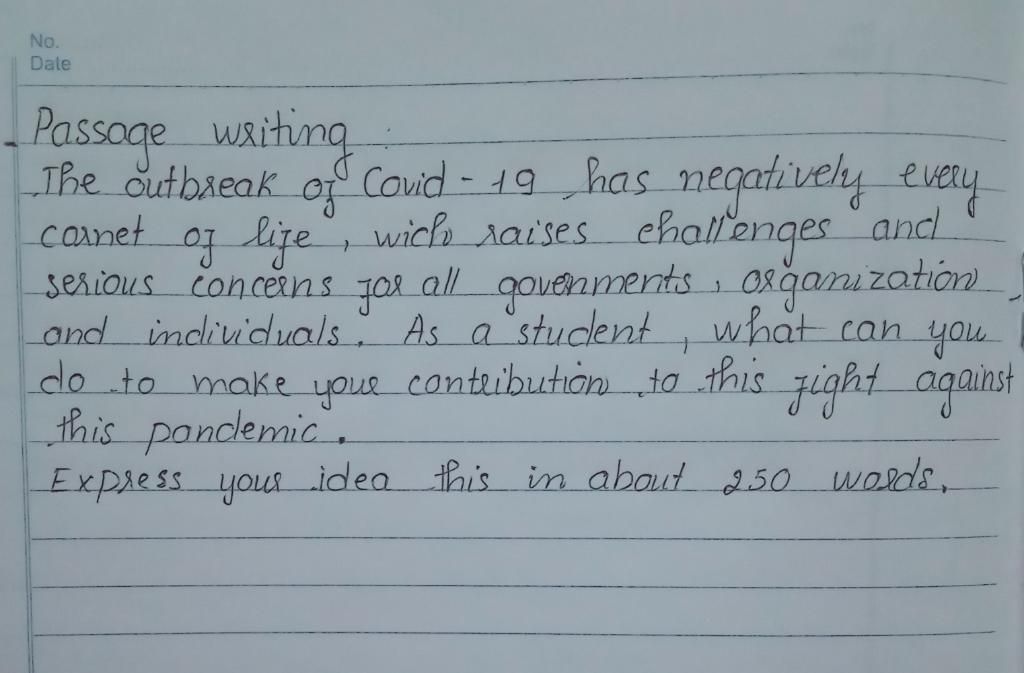 No.
Date
Passage writing :
The outbreak of Covid - 19 has negatively every
cornet of life, wich raises challenges and
serious concerns for all govenments, organization
and individuals. As a student, what can you
do to make your contribution to this fight against
this pandemic.
Express your idea this in about 250 words.